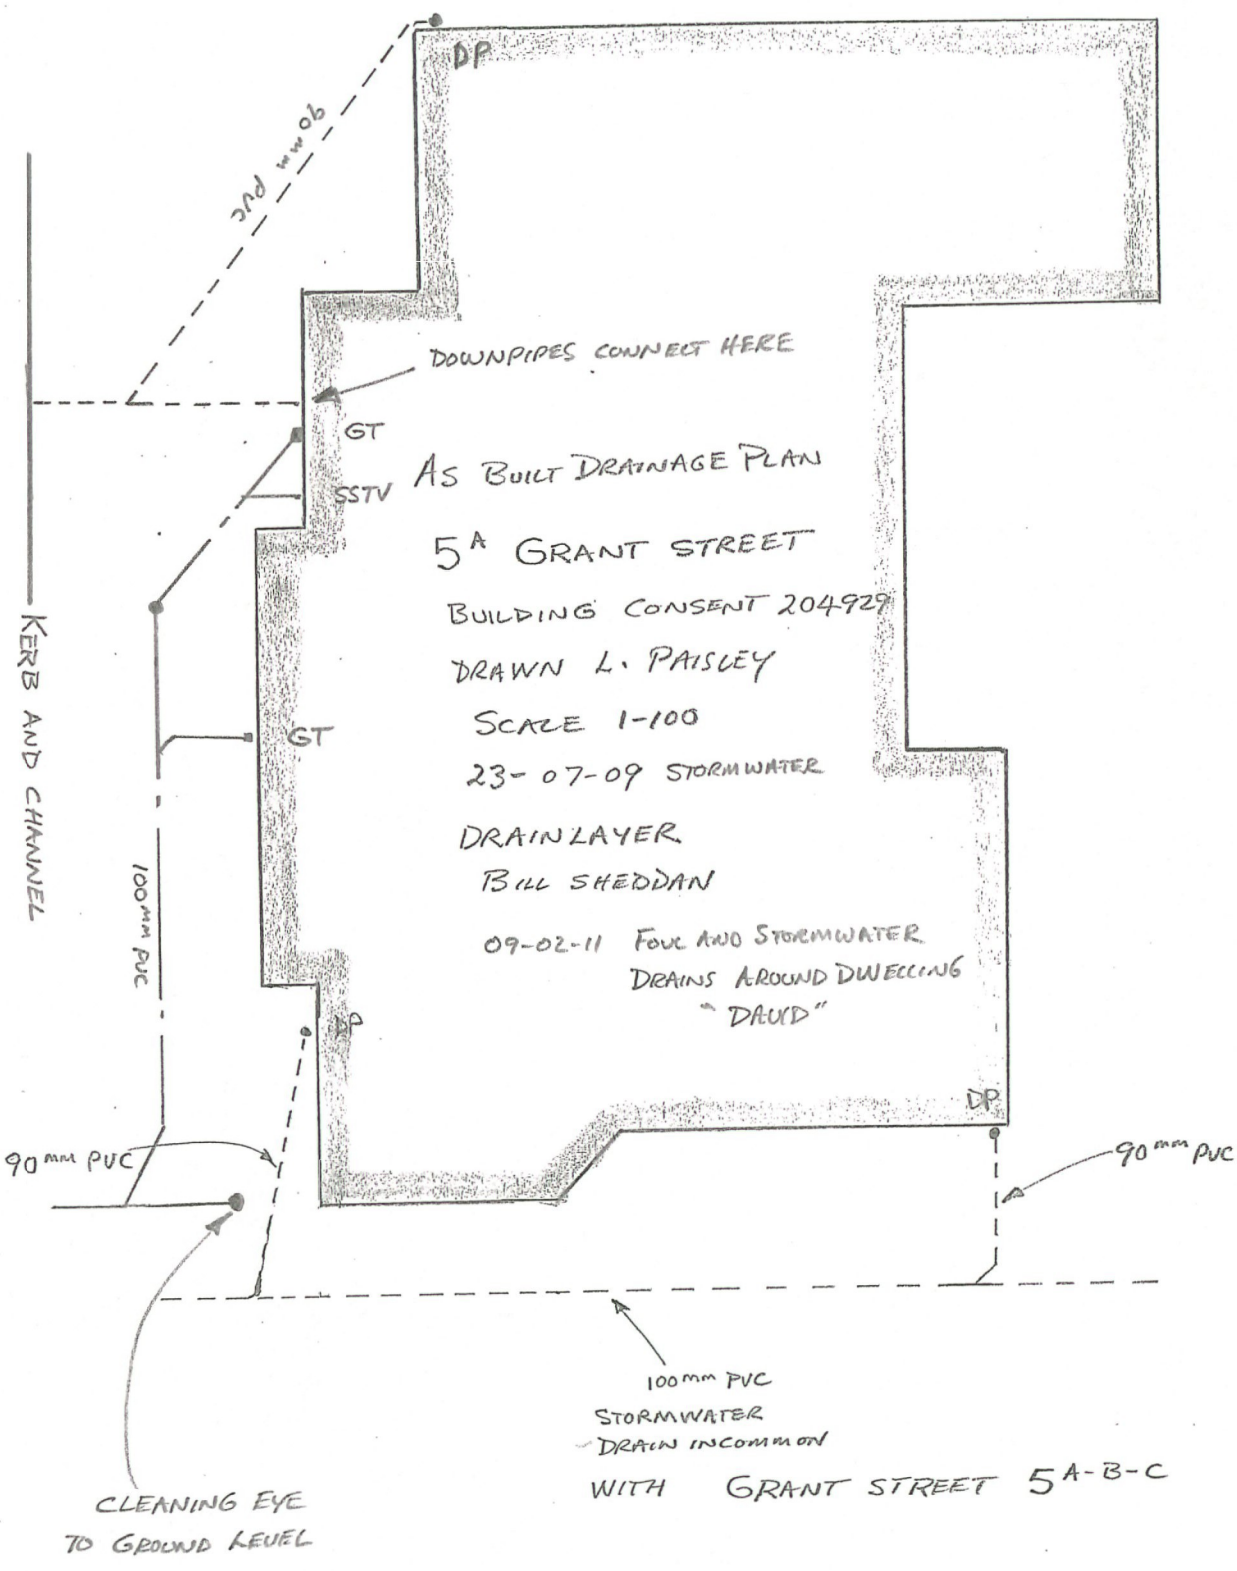 DP
90mm PVC
DOWNPIPES CONNECT HERE
GT
SSTV
AS BUILT DRAINAGE PLAN
5A GRANT STREET
BUILDING CONSENT 204929
DRAWN L. PAISLEY
SCALE 1-100
23-07-09 STORMWATER
DRAINLAYER
BILL SHEDDAN
09-02-11 FOUL AND STORMWATER
DRAINS AROUND DWELLING
"DAVID"
KERB AND CHANNEL
GT
100mm PVC
DP
DP
90mm PVC
90mm PVC
100mm PVC
STORMWATER
DRAIN IN COMMON
WITH GRANT STREET 5A-B-C
CLEANING EYE
TO GROUND LEVEL